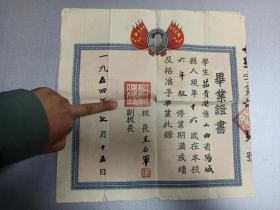 畢業證書
學生茹青選係山西省陽城
縣人現年十六歲在本校
六年級修業期滿成績
及格准予畢業此證
校長王石軍
副校長
一九五四年七月十五日